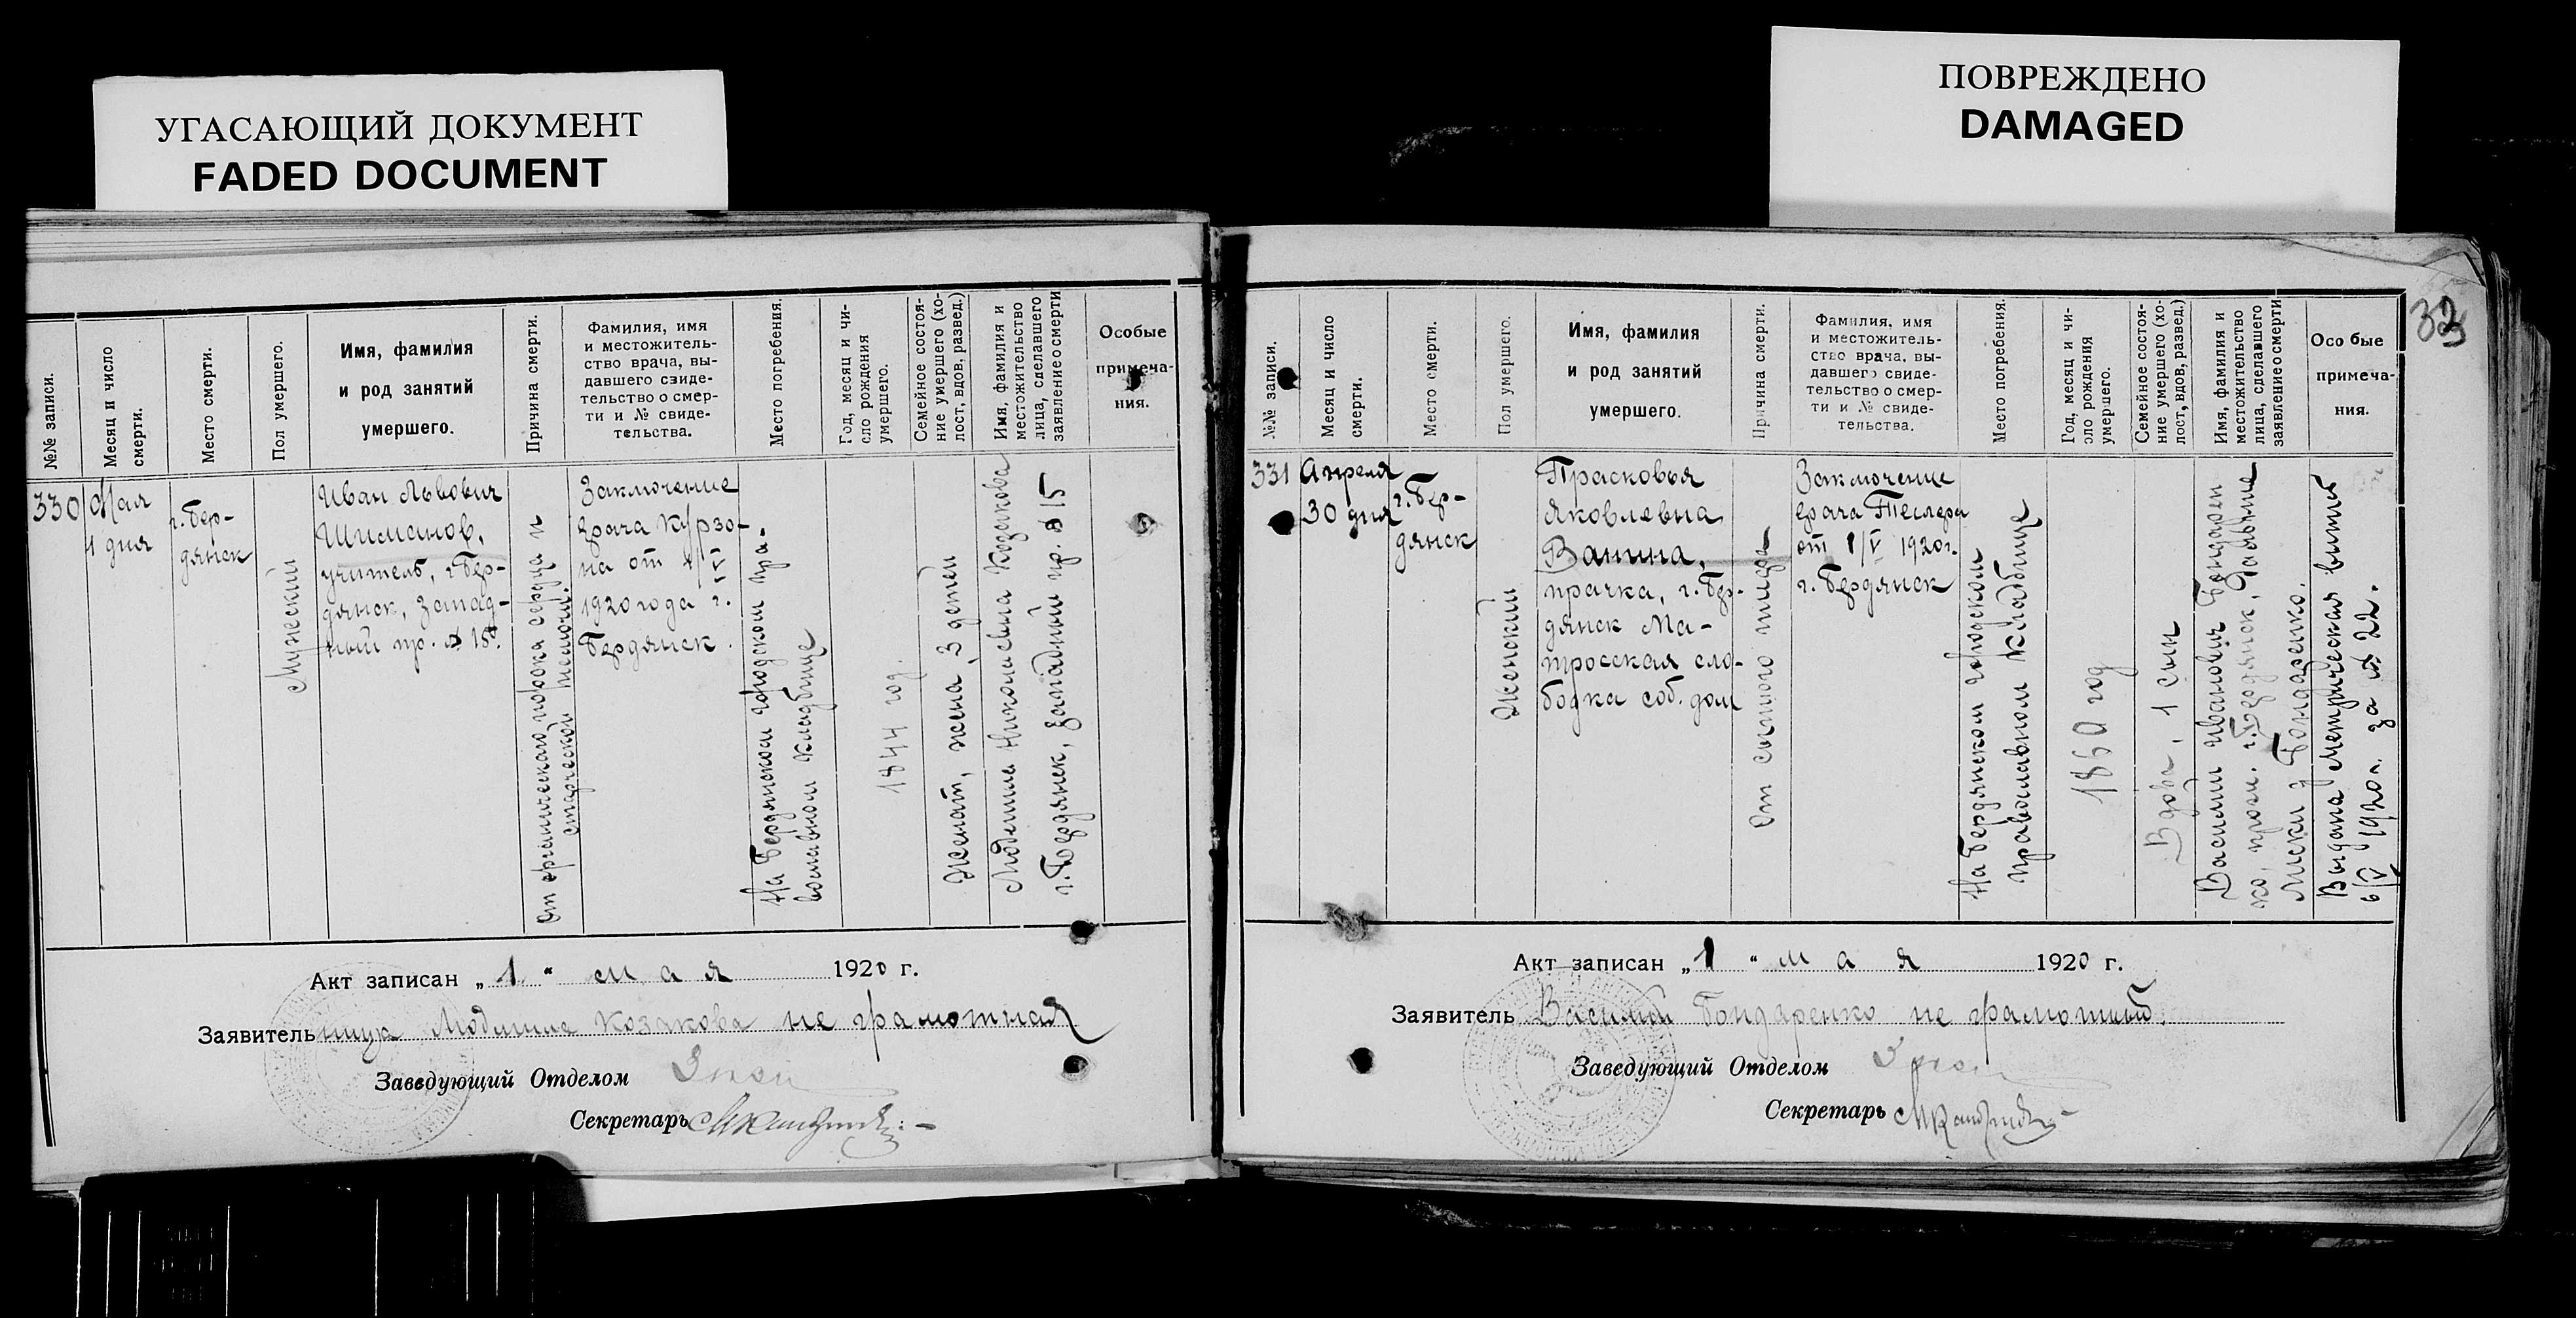 УГАСАЮЩИЙ ДОКУМЕНТ
FADED DOCUMENT
ПОВРЕЖДЕНО
DAMAGED
№№ записи.
Месяц и число
смерти.
Место смерти.
Пол умершего.
Имя, фамилия
и род занятий
умершего.
Причина смерти.
Фамилия, имя
и местожитель-
ство врача, вы-
давшего свиде-
тельство о смер-
ти и № свиде-
тельства.
Место погребения.
Год, месяц и чи-
сло рождения
умершего.
Семейное состоя-
ние умершего (хо-
лост, вдов, развед.)
Имя, фамилия и
местожительство
лица, сделавшего
заявление о смерти
Особые
примеча-
ния.
330
Мая
1 дня
г. Бер-
дянск
Мужеский
Иван Львович
Шиманов,
учитель, г. Бер-
дянск, Запад-
ный пр. № 15.
От органического порока сердца и
старческой немочи.
Заключение
врача Курзо-
на от 1/V
1920 года г.
Бердянск.
На Бердянском городском пра-
вославном кладбище
1844 год.
Женат, жена, 3 детей
Людмила Николаевна Козакова
г. Бердянск, Западный пр. № 15
Акт записан „ 1 “ мая 1920 г.
Заявительница Людмила Козакова не грамотная
Заведующий Отделом
Секретарь
32
№№ записи.
Месяц и число
смерти.
Место смерти.
Пол умершего.
Имя, фамилия
и род занятий
умершего.
Причина смерти.
Фамилия, имя
и местожитель-
ство врача, вы-
давшего свиде-
тельство о смер-
ти и № свиде-
тельства.
Место погребения.
Год, месяц и чи-
сло рождения
умершего.
Семейное состоя-
ние умершего (хо-
лост, вдов, развед.)
Имя, фамилия и
местожительство
лица, сделавшего
заявление о смерти
Особые
примеча-
ния.
331
Апреля
30 дня
г. Бер-
дянск
Женский
Прасковья
Яковлевна
Ванина,
прачка, г. Бер-
дянск Ма-
тросская сло-
бодка соб. дом
От сыпного тифа
Заключение
врача Теслера
от 1/V 1920 г.
г. Бердянск
На Бердянском городском
православном кладбище
1860 год
Вдова, 1 сын
Василий Иванович Бондарен
ко, г. Бердянск,
Бондаренко.
Выдана метрическая выпись
6/V 1920 г. за № 22.
Акт записан „ 1 “ мая 1920 г.
Заявитель Василий Бондаренко не грамотный.
Заведующий Отделом
Секретарь